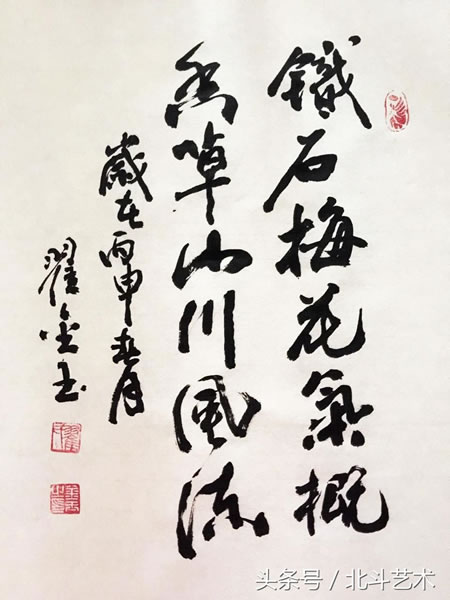 鐵石梅花氣概
香草山川風流
歲在丙申春月
翟金玉
头条号 / 北斗艺术